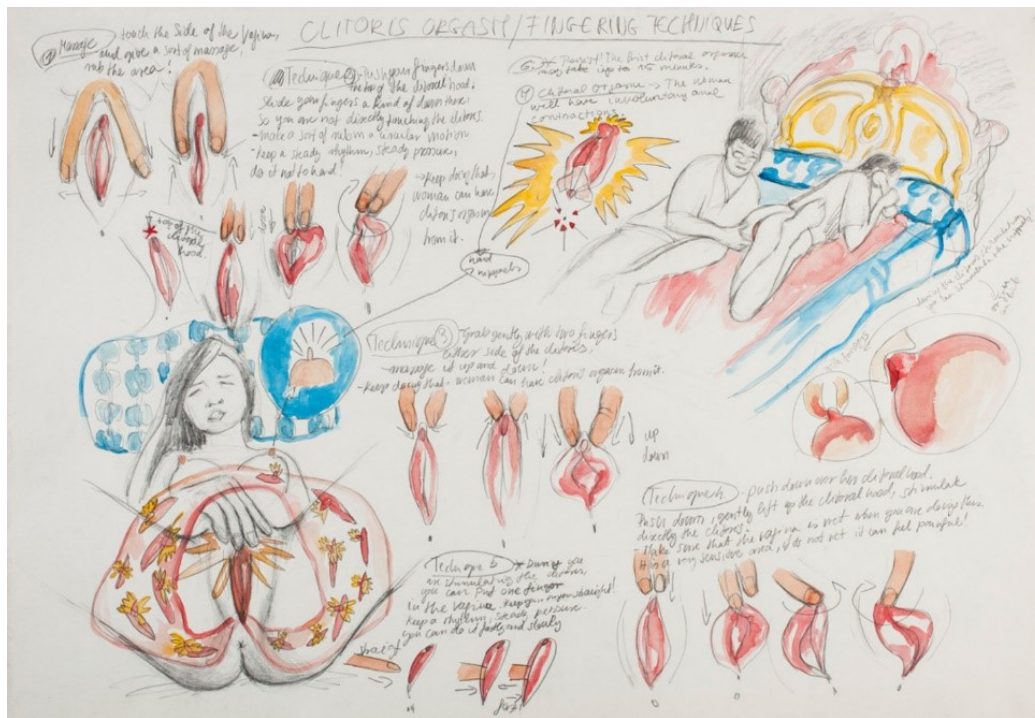 CLITORIS ORGASM/FINGERING TECHNIQUES
① Massage
touch the side of the vagina,
and give a sort of massage,
rub the area!
Technique
Push your fingers down
the top of the clitoral hood.
Slide your fingers
down there
so you are not directly touching the clitoris.
- make a sort of rub in a circular motion
- keep a steady rhythm, steady pressure,
do it not to hard!
→ keep doing that,
woman can have
clitoris orgasm
from it.
down
top of the
clitoral
hood.
The first clitoral orgasm
may take up to 15 minutes.
Clitoral orgasm → The woman
will have involuntary anal
contractions
hard
nipples
Technique 3
Grab gently with two fingers
either side of the clitoris,
- massage it up and down!
- Keep doing that - woman can have clitoris orgasm from it.
up
down
Technique 4
- push down over her clitoral hood.
Push down, gently lift up the clitoral hood, stimulate
directly the clitoris.
- Make sure that the vagina is wet when you are doing this
It is a very sensitive area, if its not wet it can feel painful!
Technique 5
During you
are stimulating the clitoris,
you can put one finger
in the vagina. Keep your finger straight!
Keep a rhythm, steady pressure.
you can do it fastly and slowly
straight